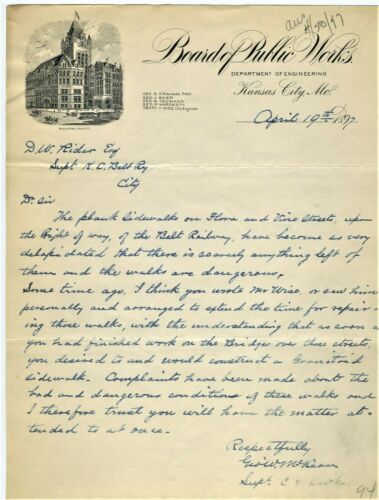 aug
4/20/97
Board of Public Works.
DEPARTMENT OF ENGINEERING
Kansas City, Mo.
GEO. J. BAER
GEO. W. YOUMANS
GEO. P. HARDESTY
HENRY A. WISE, City Engineer
April 19th 1897
D. W. Rider Esq
Supt K. C. Belt Ry
City
Dr. Sir
The plank sidewalks on Flora and Vine Street, upon
the Right of way, of the Belt Railway, have become so very
delapidated that there is scarcely anything left of
them and the walks are dangerous.
Some time ago, I think you wrote Mr Wise, or saw him
personally and arranged to extend the time for repair-
ing those walks, with the understanding that as soon a
you had finished work on the Bridges over those streets,
you desired to and would construct a Granitoid
sidewalk. Complaints have been made about the
bad and dangerous conditions of these walks and
I therefore trust you will have the matter at-
tended to at once.
Respectfully
Geo W. McKean
Supt.
94